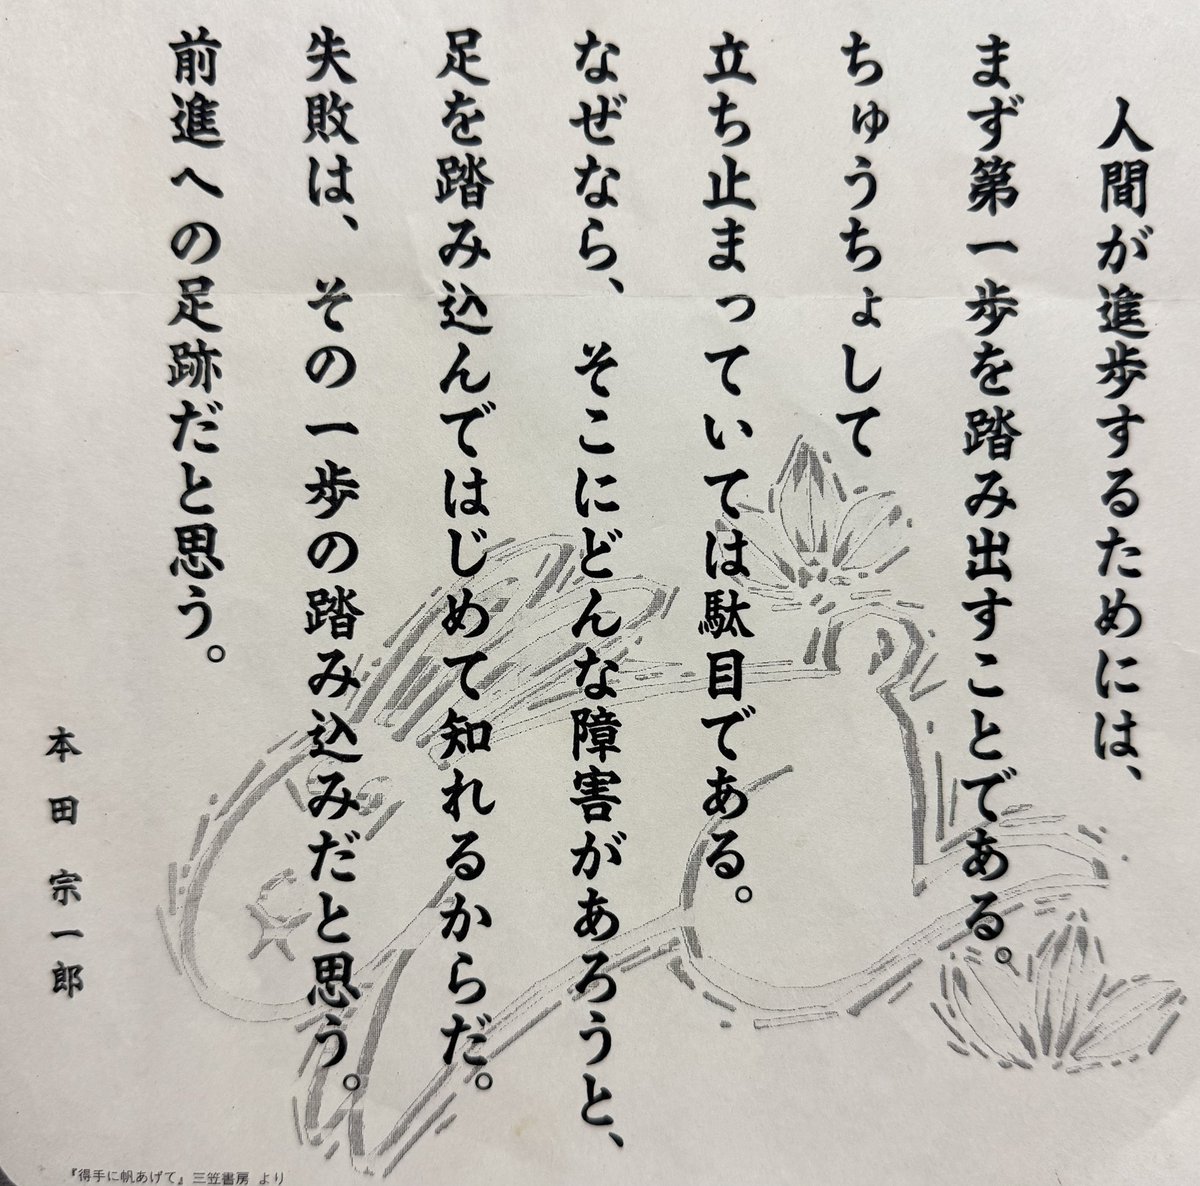 人間が進歩するためには、
まず第一歩を踏み出すことである。
ちゅうちょして
立ち止まっていては駄目である。
なぜなら、そこにどんな障害があろうと、
足を踏み込んではじめて知れるからだ。
失敗は、その一歩の踏み込みだと思う。
前進への足跡だと思う。
本田宗一郎
『得手に帆あげて』三笠書房 より